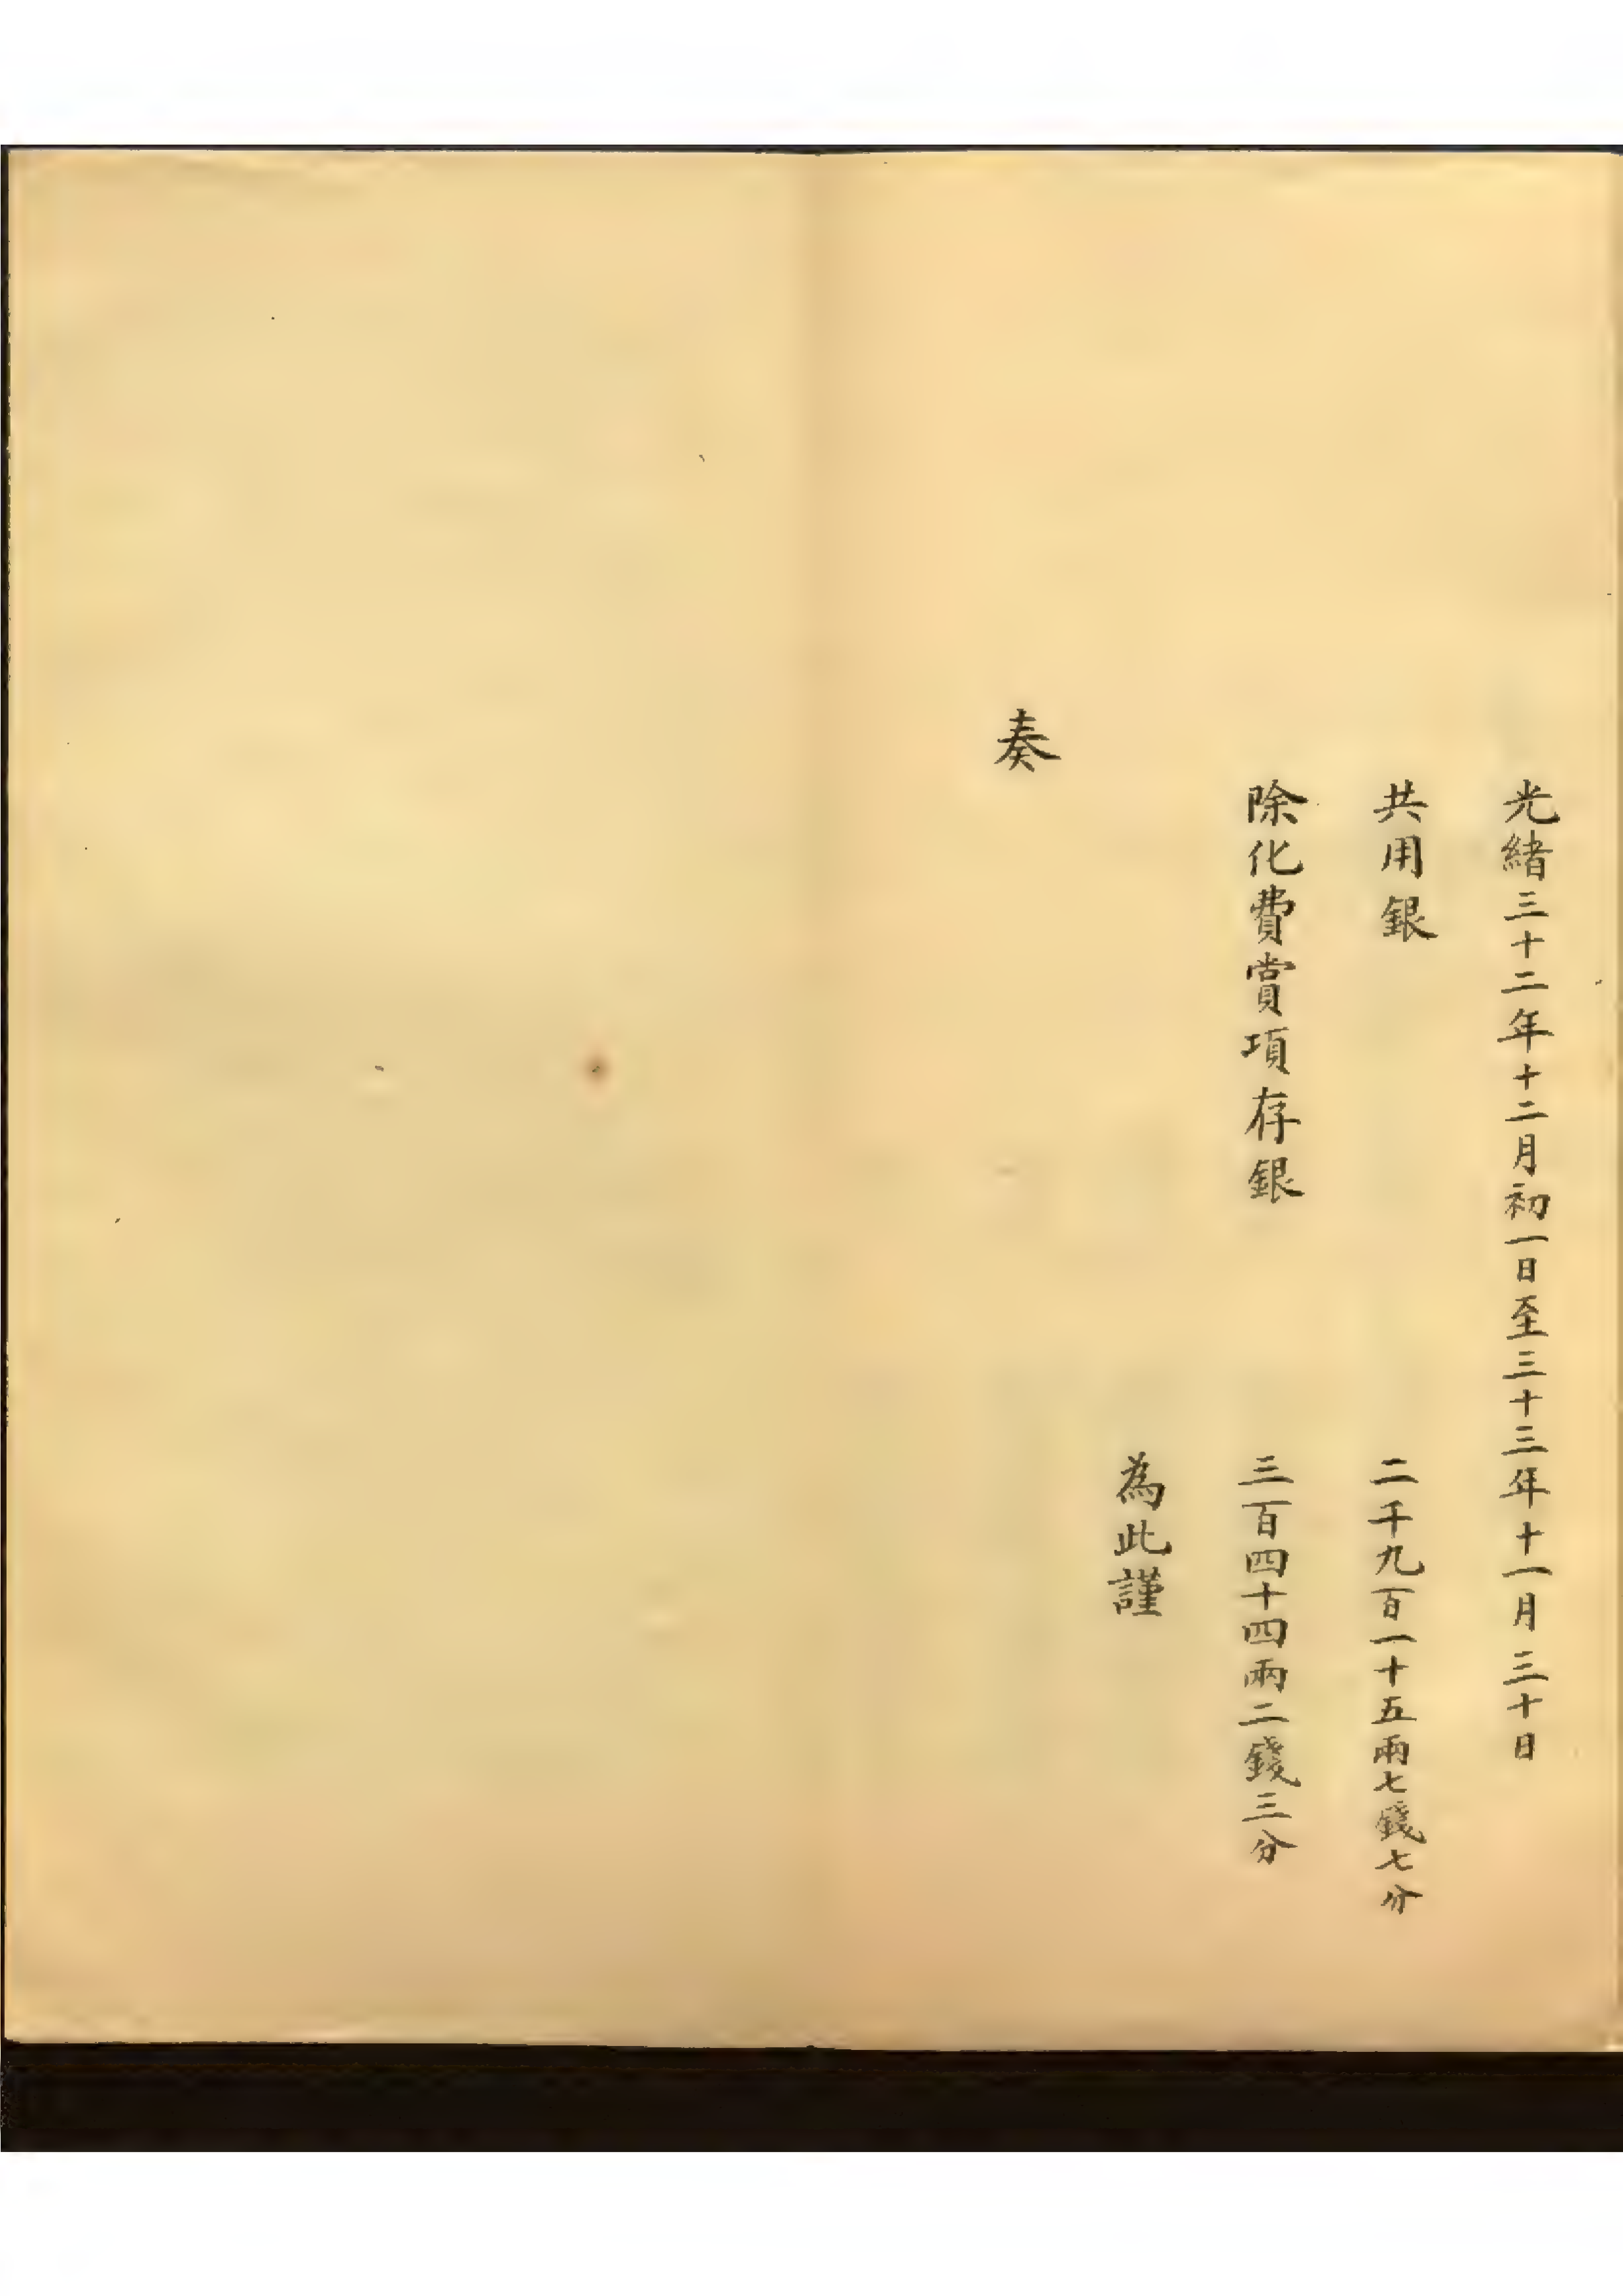 光緒三十二年十二月初一日至三十三年十一月三十日
共用銀 二千九百一十五兩七錢七分
除化費賞項存銀 三百四十四兩二錢三分
為此謹
奏